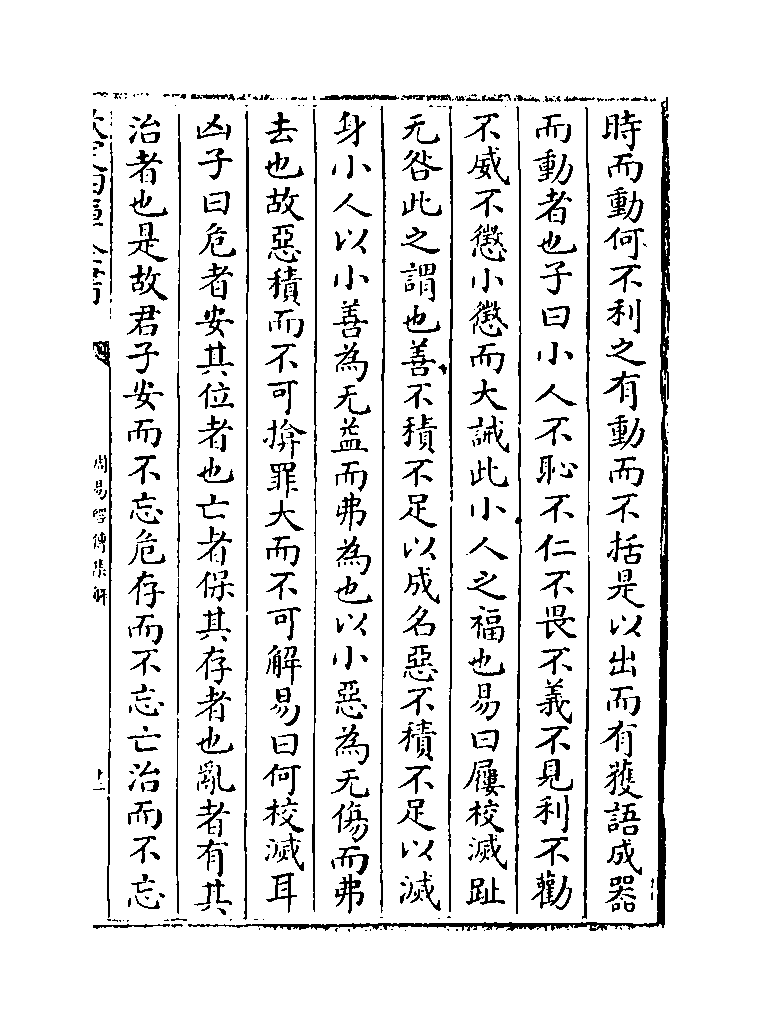 時而動何不利之有動而不括是以出而有獲語成器
而動者也子曰小人不恥不仁不畏不義不見利不勸
不威不懲小懲而大誡此小人之福也易曰屨校滅趾
无咎此之謂也善不積不足以成名惡不積不足以滅
身小人以小善為无益而弗為也以小惡為无傷而弗
去也故惡積而不可揜罪大而不可解易曰何校滅耳
凶子曰危者安其位者也亡者保其存者也亂者有其
治者也是故君子安而不忘危存而不忘亡治而不忘
周易經傳集解